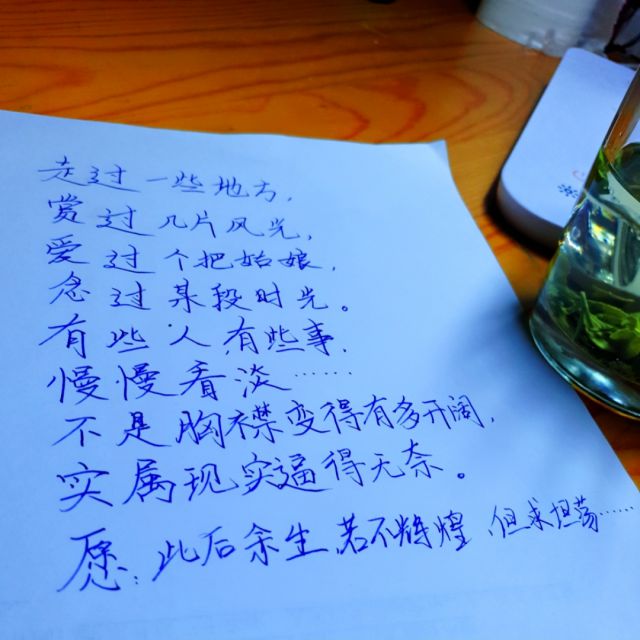 走过一些地方，
赏过几片风光，
爱过个把姑娘，
怠过某段时光。
有些人，有些事，
慢慢看淡……
不是胸襟变得有多开阔，
实属现实逼得无奈。
愿：此后余生，若不辉煌 但求坦荡……